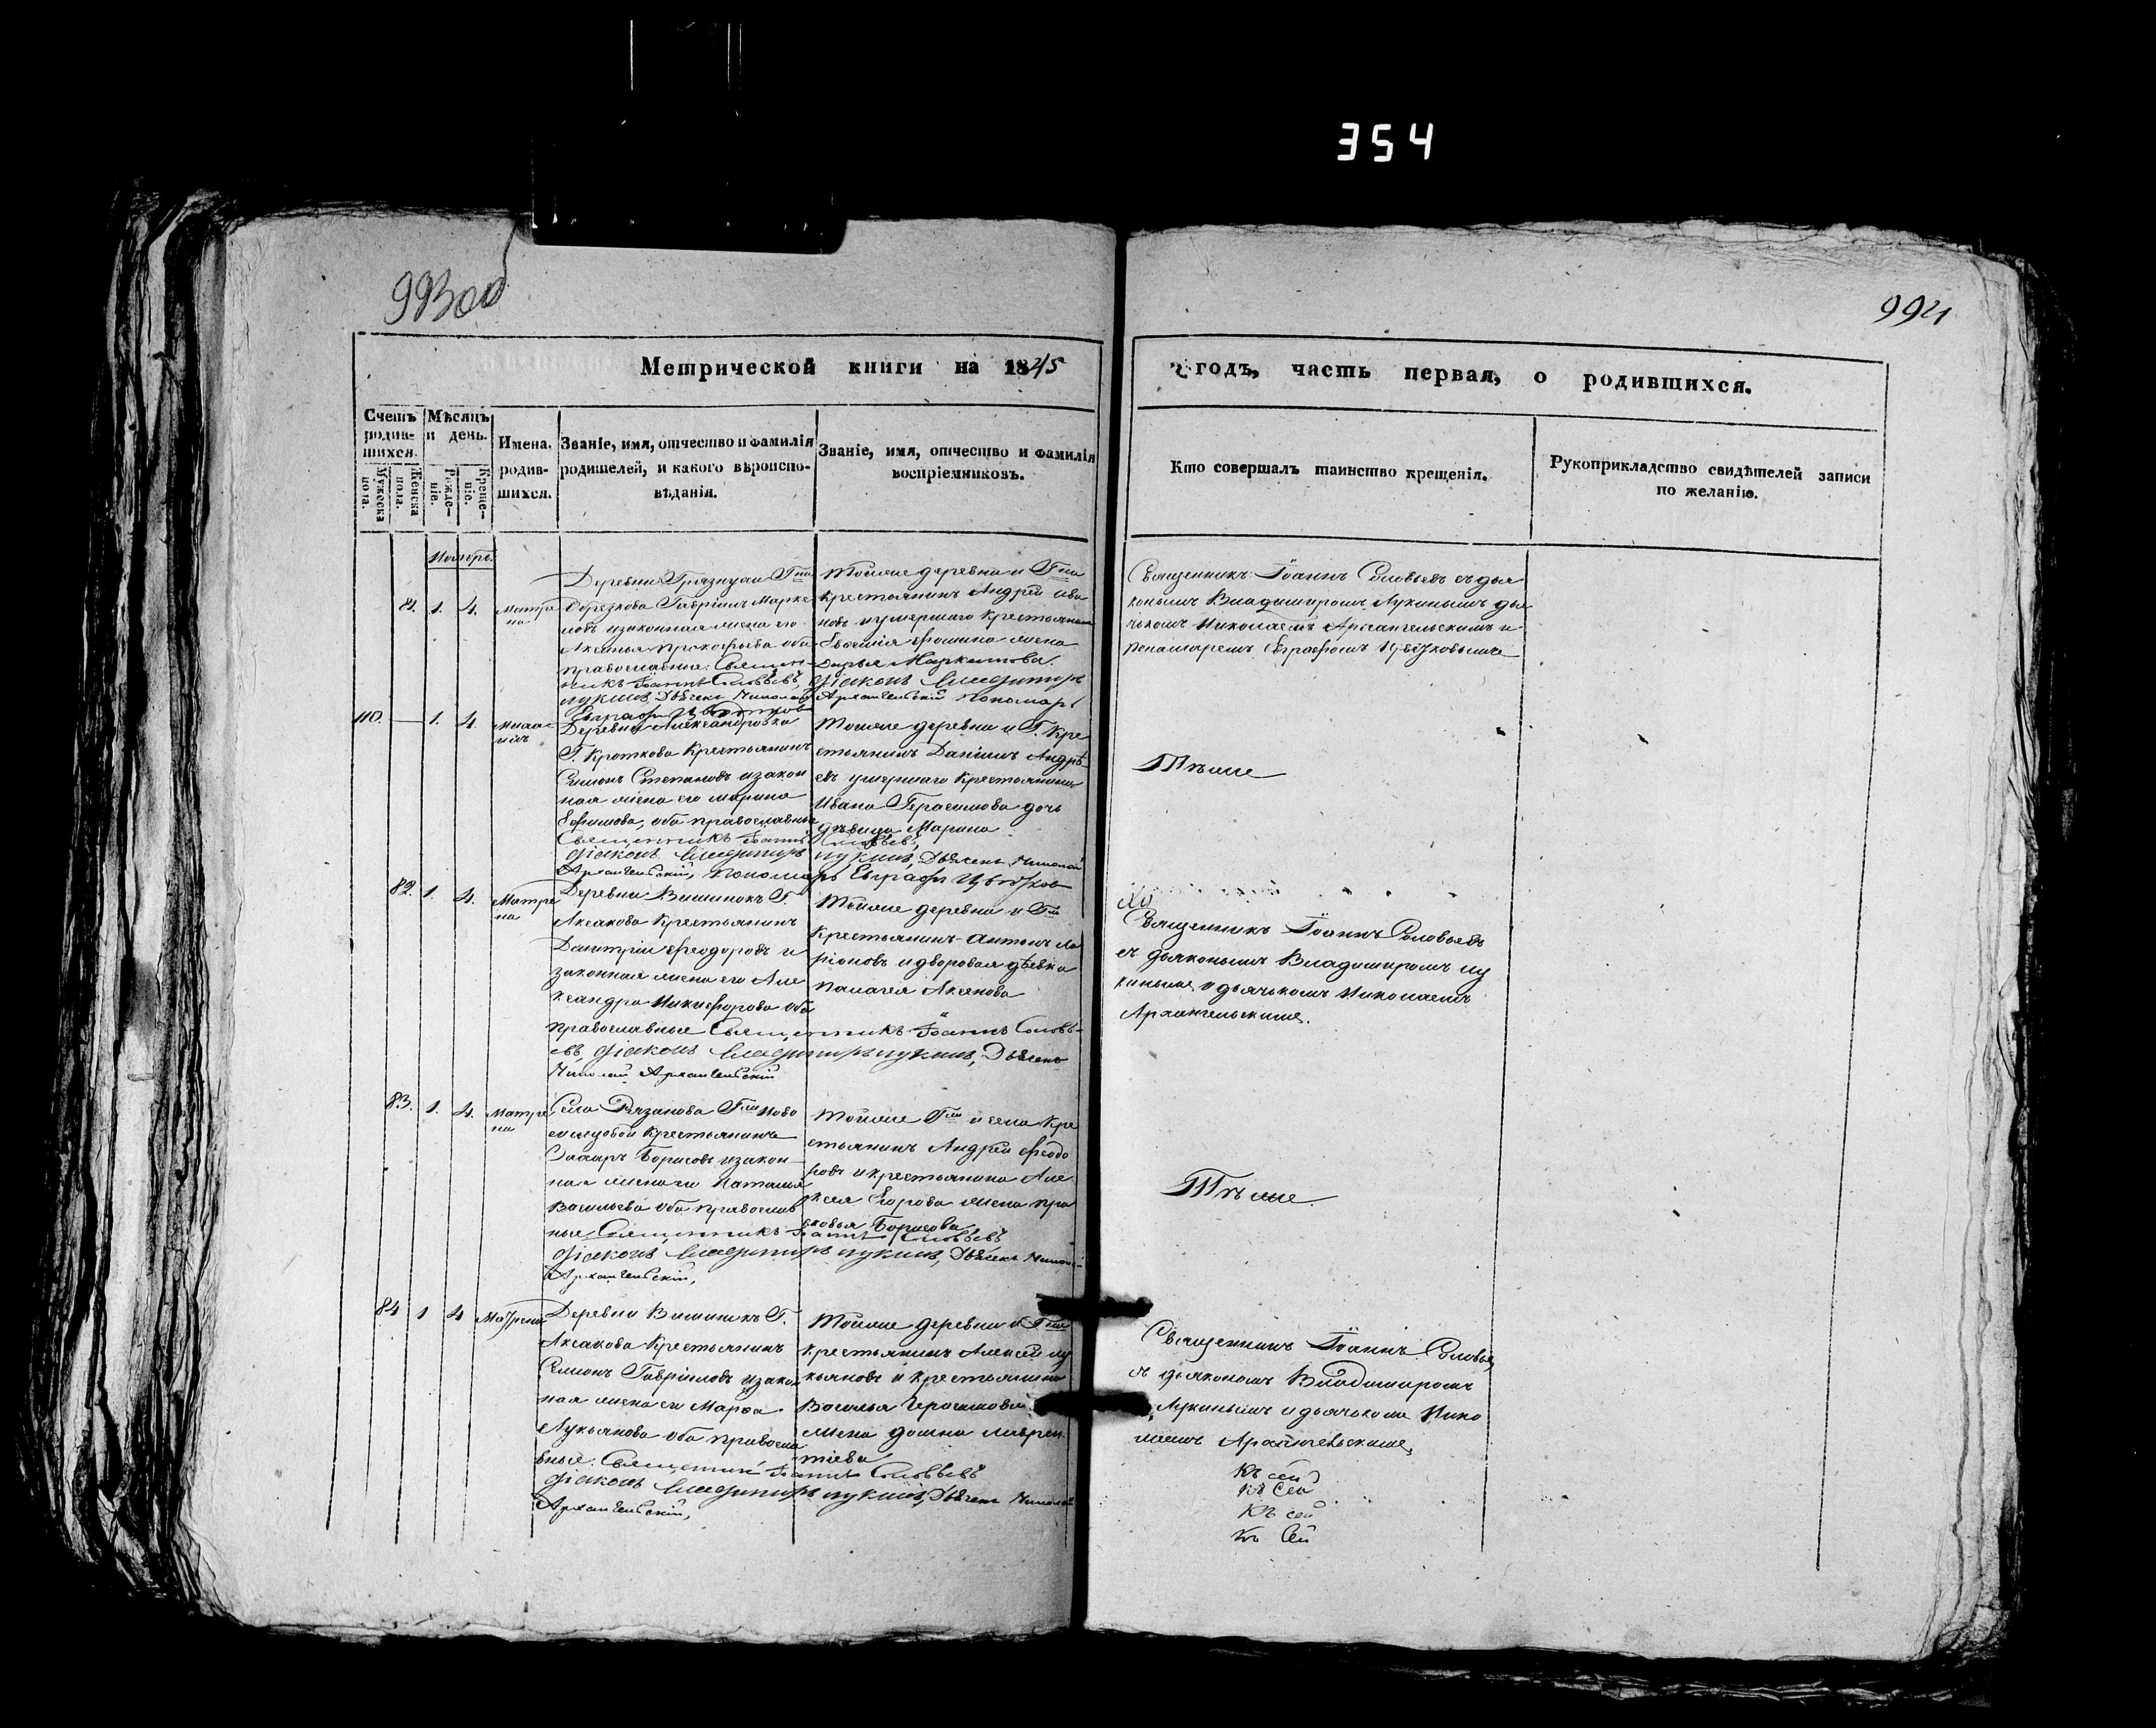 354
993об
994
Метрической книги на 1845
годъ, часть первая, о родившихся.
Счетъ родив-шихся.
Мужеска пола.
Женска пола.
Мѣсяцъ и день.
Рожде-ніе.
Креще-ніе.
Имена родив-шихся.
Званіе, имя, отчество и фамилія
родителей, и какого вѣроиспо-
вѣданія.
Званіе, имя, отчество и фамилія
воспріемниковъ.
Кто совершалъ таинство крещенія.
Рукоприкладство свидѣтелей записи
по желанію.
Ноябрь.
81. 1. 4. Матре
на
Деревни Грязнухи Гна
Обрезкова Гавріилъ Марке
ловъ изаконная жена его
Аксинья Прокофьева оба
православные. Священ-
никъ Іоаннъ Соловьевъ,
Лукинъ, Дьячекъ Николай
Евграфъ Цвѣтковъ
Тойже деревни и Гна
крестьянинъ Андрей Ива
новъ и умершаго крестьянина
Евфимія Фомина жена
Дарья Маркелова.
Діаконъ Владимиръ
Архангельскій Пономарь
Священникъ Іоаннъ Соловьевъ съ дья
кономъ Владимиромъ Лукинымъ дья
чькомъ Николаемъ Архангельскимъ и
пономаремъ Евграфомъ Цвѣтковымъ
110. 1. 4.
Деревни Александровки
Г. Кроткова крестьянинъ
Симонъ Степановъ изакон
ная жена его Марина
Ефимова, оба православные
Священникъ Іоаннъ Соловьевъ,
Діаконъ Владимиръ Лукинъ, Дьячекъ Николай
Архангельскій, Пономарь Евграфъ Цвѣтковъ
Тойже деревни и Г. кре
стьянинъ Даніилъ Андрѣ
евъ умершаго крестьянина
Ивана Герасимова дочь
дѣвица Марина.
Тѣже
82. 1. 4. Матре
на
Деревни Вишенокъ Г.
Аксакова крестьянинъ
Димитрій Феодоровъ и
законная жена его Але
ксандра Никифорова оба
православные Священникъ Іоаннъ Соловь-
евъ, Діаконъ Владимиръ Лукинъ, Дьячекъ
Николай Архангельскій
Тойже деревни и Гна
крестьянинъ Антонъ Ла
ріоновъ и дворовая дѣвка
Палагея Аксенова
Священникъ Іоаннъ Соловьевъ
съ дьякономъ Владимиромъ Лу
кинымъ и дьячькомъ Николаемъ
Архангельскимъ.
83. 1. 4. Матре
на
Села Рязанова Гжи Ново
сильцовой крестьянинъ
Захаръ Борисовъ изакон
ная жена его Наталья
Васильева оба православ
ные, Священникъ Іоаннъ Соловьевъ
Діаконъ Владимиръ Лукинъ, Дьячекъ Николай
Архангельскій,
Тойже Гжи и села кре
стьянинъ Андрей Феодо
ровъ и крестьянина Але
ксея Егорова жена Пра
сковья Борисова
Тѣже.
84 1 4 Матрена
Деревни Вишенокъ Г.
Аксакова крестьянинъ
Симонъ Гавріиловъ изакон
ная жена его Марѳа
Лукьянова оба православ
ные. Священникъ Іоаннъ Соловьевъ
Діаконъ Владимиръ Лукинъ, Дьячекъ Николай
Архангельскій,
Тойже деревни и Гна
крестьянинъ Алексѣй Лу
кьяновъ и крестьянина
Василья Герасимова
жена Домна Лаврен
тіева
Священникъ Іоаннъ Соловьевъ
съ дьякономъ Владимиромъ
Лукинымъ и дьячькомъ Нико
лаемъ Архангельскимъ,
Къ сей
Къ сей
Къ сей
Къ сей